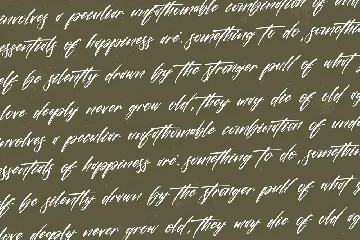 involves a peculiar unfathomable combination of
essentials of happiness are: something to do, something
elf be silently drawn by the stronger pull of what
love deeply never grow old, they may die of old
involves a peculiar unfathomable combination of
essentials of happiness are: something to do, something
elf be silently drawn by the stronger pull of what
love deeply never grow old, they may die of old